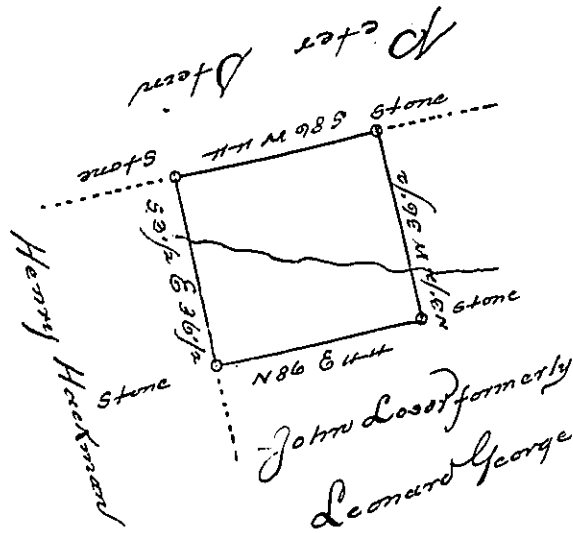 Peter Stein
Stone
S 86 W 44
Stone
N 3½ W 36½
Stone
N 86 E 44
Stone
S 3½ E 36½
Henry Hackman
John Loser formerly
Leonard George